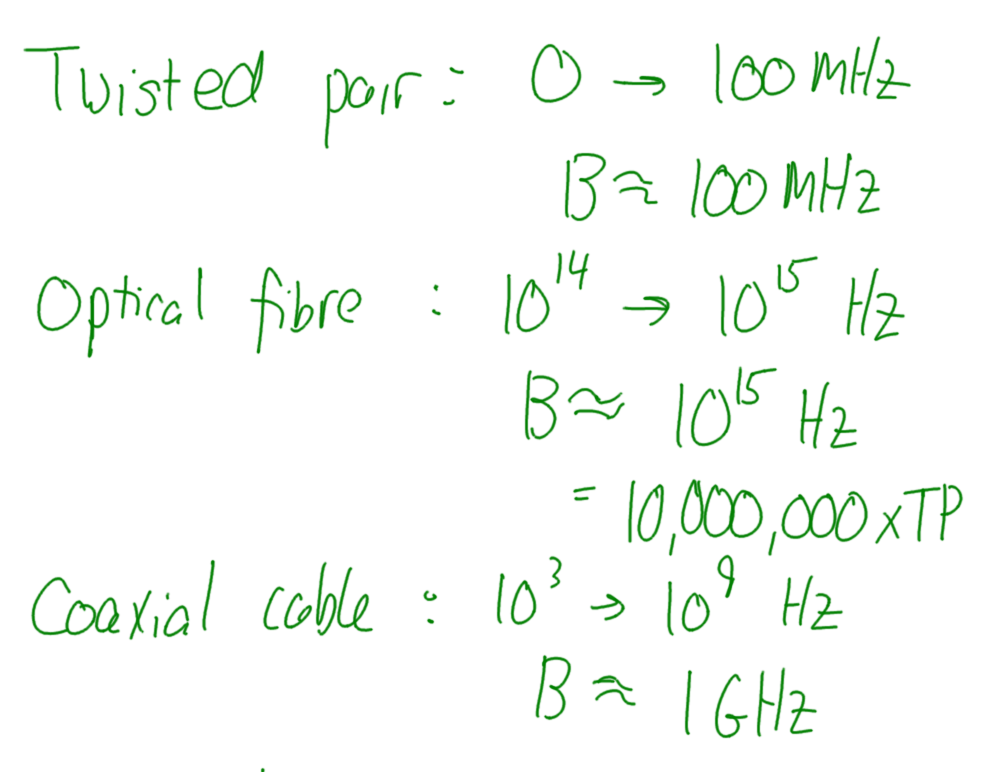 Twisted pair : 0 → 100 MHz
B ≈ 100 MHz
Optical fibre : 10¹⁴ → 10¹⁵ Hz
B ≈ 10¹⁵ Hz
= 10,000,000 x TP
Coaxial cable : 10³ → 10⁹ Hz
B ≈ 1 GHz